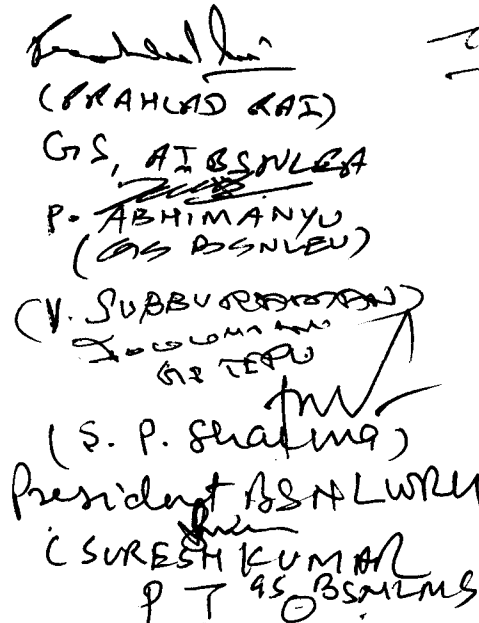 (PRAHLAD RAI)
GS, AIBSNLEA
P. ABHIMANYU
(GS BSNLEU)
(V. SUBBURAMAN)
GS TEPU
(S. P. Sharma)
President BSNLWRU
(SURESH KUMAR
P T GS BSNLMS